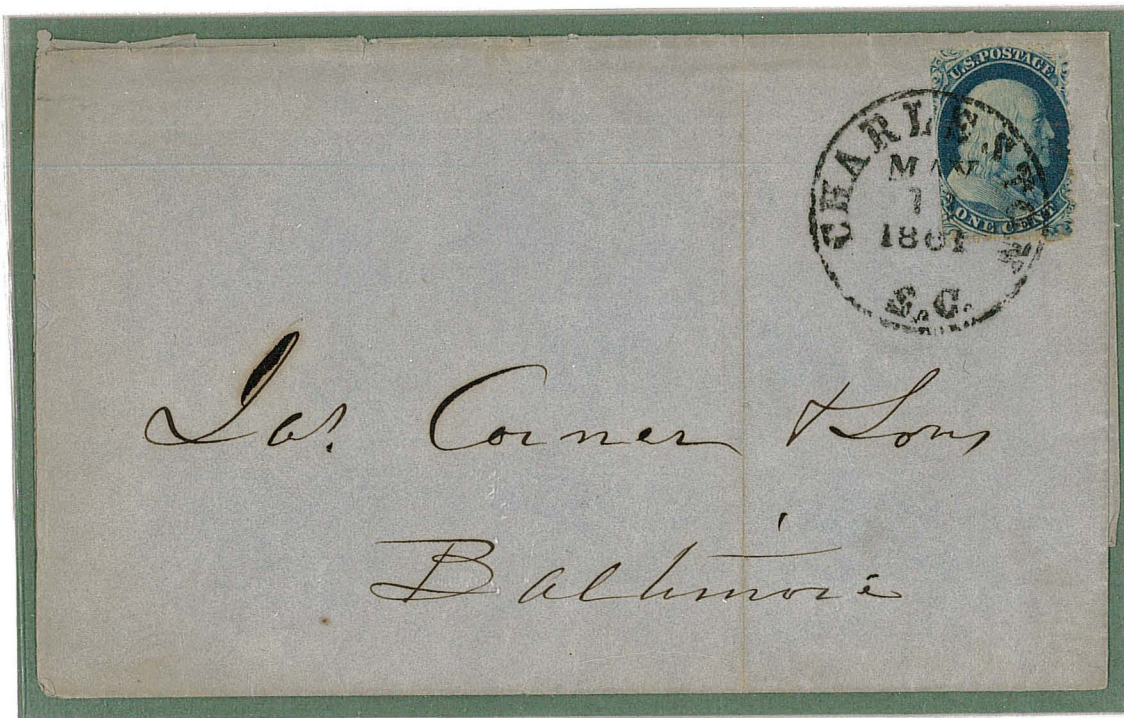 U.S. POSTAGE
ONE CENT
CHARLESTON
MAY
1
1861
S.C.
Jas. Corner & Sons
Baltimore